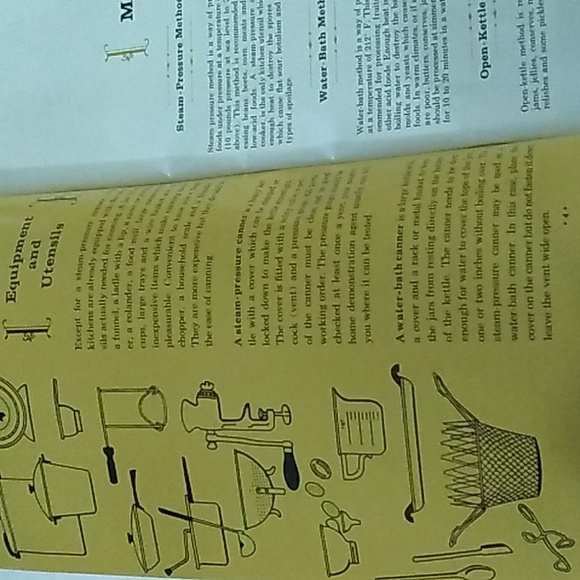 Equipment
and
Utensils
Except for a steam-pressure
kitchens are already equipped
sils actually needed for
a funnel, a ladle with a lip, a
er, a colander, a food mill
cups, large trays and a
inexpensive items which make
pleasurable. Convenient to
chopper, a household scale, and a
They are more expensive but
the ease of canning.
A steam-pressure canner
tle with a cover which
locked down to make the
The cover is fitted with a
cock (vent) and a
of the canner must be
working order. The pressure
checked at least once a year,
home demonstration agent
you where it can be tested.
A water-bath canner is a large
a cover and a rack or metal basket to
the jars from resting directly on the
of the kettle. The canner needs to be
enough for water to cover the tops of the
one or two inches without boiling over.
steam-pressure canner may be used
water-bath canner. In this case, place
cover on the canner but do not fasten it
leave the vent wide open.
• 4 •
M
Steam-Pressure Method
Steam-pressure method is a way of
foods under pressure at a temperature
(10 pounds pressure at sea level to
above). This method is recommended
essing beans, beets, corn, meats and
low-acid foods. A steam-pressure
cooker, is the only kitchen utensil which
enough heat to destroy the spores
which cause flat-sour, botulism and
types of spoilage.
Water-Bath Meth
Water-bath method is a way of
at a temperature of 212°F. This
ommended for processing fruits
other acid foods. Enough heat is
boiling water to destroy the
molds and yeasts which cause
foods. In warm climates, or if
are poor, butters, conserves,
should be processed at simmering
for 10 to 20 minutes in a wat
Open-Kettle
Open-kettle method is
jams, jellies, conserves,
relishes and some pickles